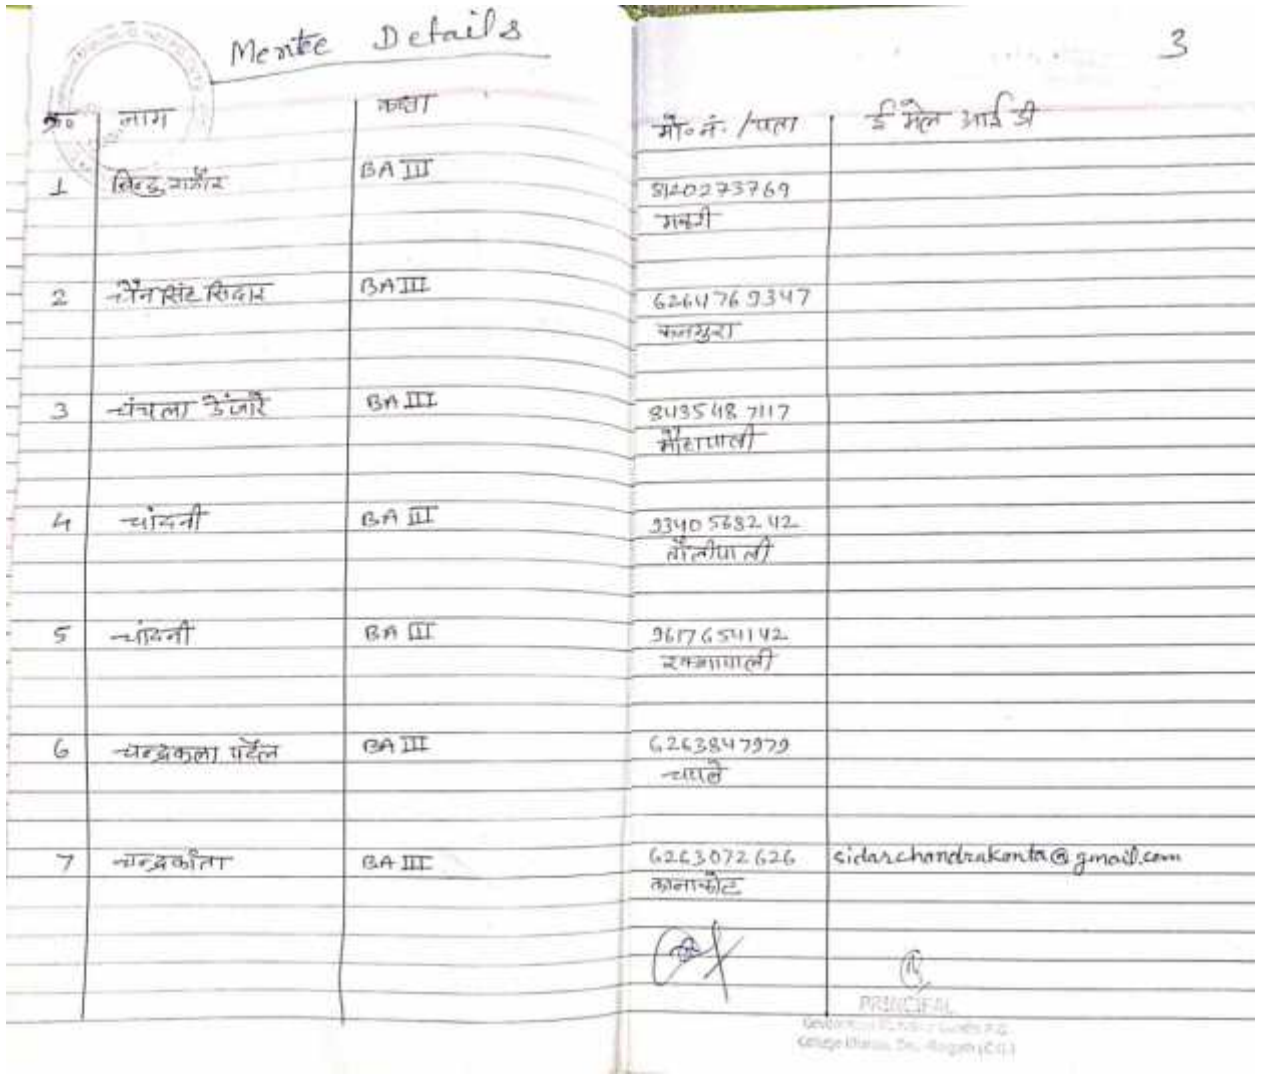 Mentee Details
3
क्र० नाम कक्षा मो०नं. /पता ई मेल आई डी
1 बिन्दु राठौर BA III 8120273769
2 चैन सिंह सिदार BA III 6264769347
3 चंचला डेंजारे BA III 8435487117
4 चांदनी BA III 9340568242
तौलीपाली
5 चांदनी BA III 9617654142
6 चन्द्रकला पटेल BA III 6263847979
चपले
7 चन्द्रकांता BA III 6263072626 sidarchandrakanta@gmail.com
कानाकोट
PRINCIPAL